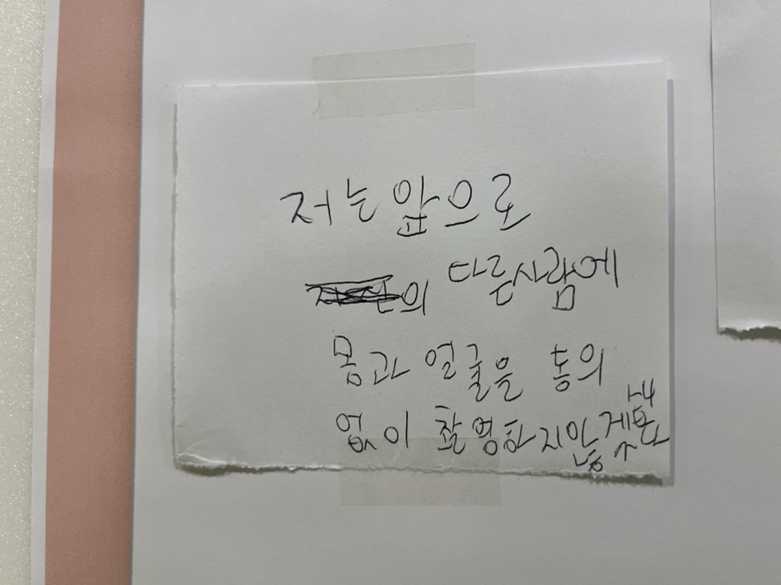 저는 앞으로
의 다른사람에
몸과 얼굴을 동의
없이 촬영하지안